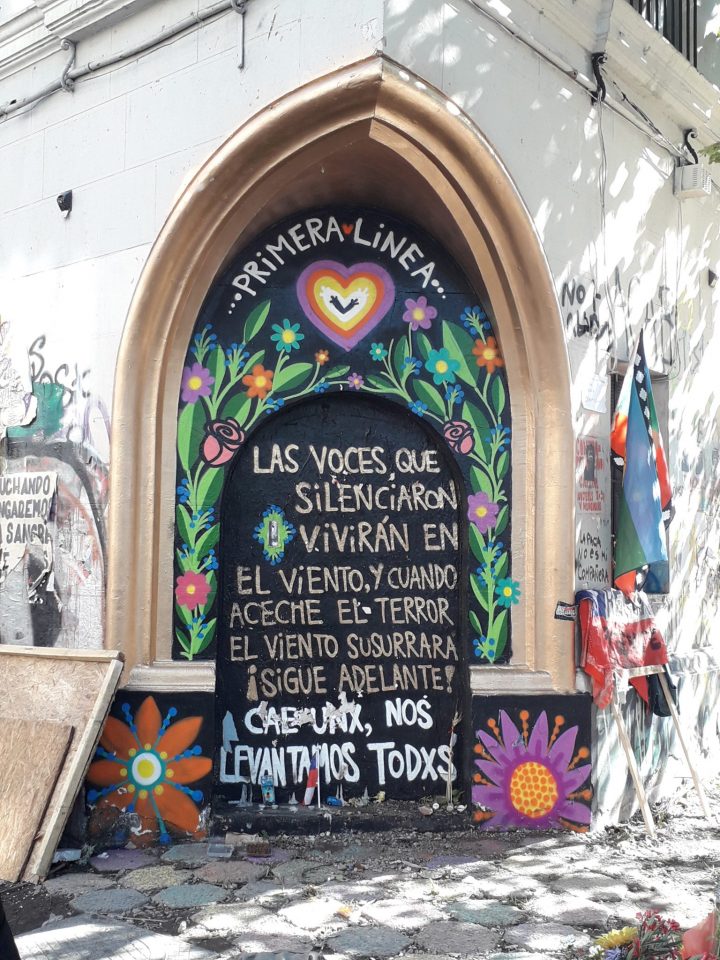 ...PRiMERA LiNEA...
LAS VOCES QUE
SiLENCiARON
ViViRÁN EN
EL ViENTO, Y CUANDO
ACECHE EL TERROR
EL ViENTO SUSURRARA
¡SiGUE ADELANTE!
CAE UNX, NOS
LEVANTAMOS TODXS
UCHANDO
NGAREMO
A SANGRE
NO
LA PACA
NO ES Mi
COMPAÑERA